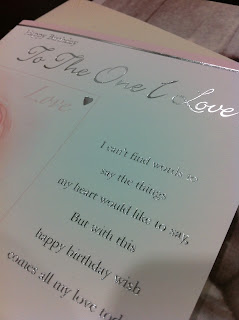 Happy Birthday
To The One I Love
Love
I can't find words to
say the things
my heart would like to say,
But with this
happy birthday wish
comes all my love